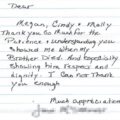 Dear
Megan, Cindy & Molly
Thank you so much for the
Patience & understanding you
showed me when my
Brother Died. And Especially
Showing him Respect and
dignity. I Can not Thank
you Enough
Much appreciation